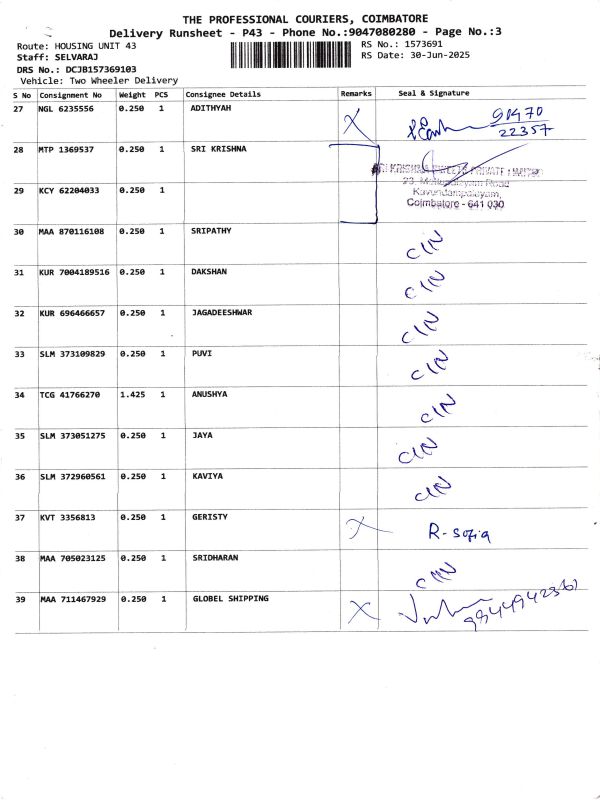 THE PROFESSIONAL COURIERS, COIMBATORE
Delivery Runsheet - P43 - Phone No.:9047080280 - Page No.:3
Route: HOUSING UNIT 43 RS No.: 1573691
Staff: SELVARAJ RS Date: 30-Jun-2025
DRS No.: DCJB157369103
Vehicle: Two Wheeler Delivery
S No Consignment No Weight PCS Consignee Details Remarks Seal & Signature
27 NGL 6235556 0.250 1 ADITHYAH X 90470
22357
28 MTP 1369537 0.250 1 SRI KRISHNA
SRI KRISHNA SWEETS PRIVATE LIMITED
29 KCY 62204033 0.250 1
Coimbatore - 641 030
30 MAA 870116108 0.250 1 SRIPATHY CIN
31 KUR 7004189516 0.250 1 DAKSHAN CIN
32 KUR 696466657 0.250 1 JAGADEESHWAR CIN
33 SLM 373109829 0.250 1 PUVI CIN
34 TCG 41766270 1.425 1 ANUSHYA CIN
35 SLM 373051275 0.250 1 JAYA CIN
36 SLM 372960561 0.250 1 KAVIYA CIN
37 KVT 3356813 0.250 1 GERISTY X R- Sofia
38 MAA 705023125 0.250 1 SRIDHARAN CIN
39 MAA 711467929 0.250 1 GLOBEL SHIPPING X